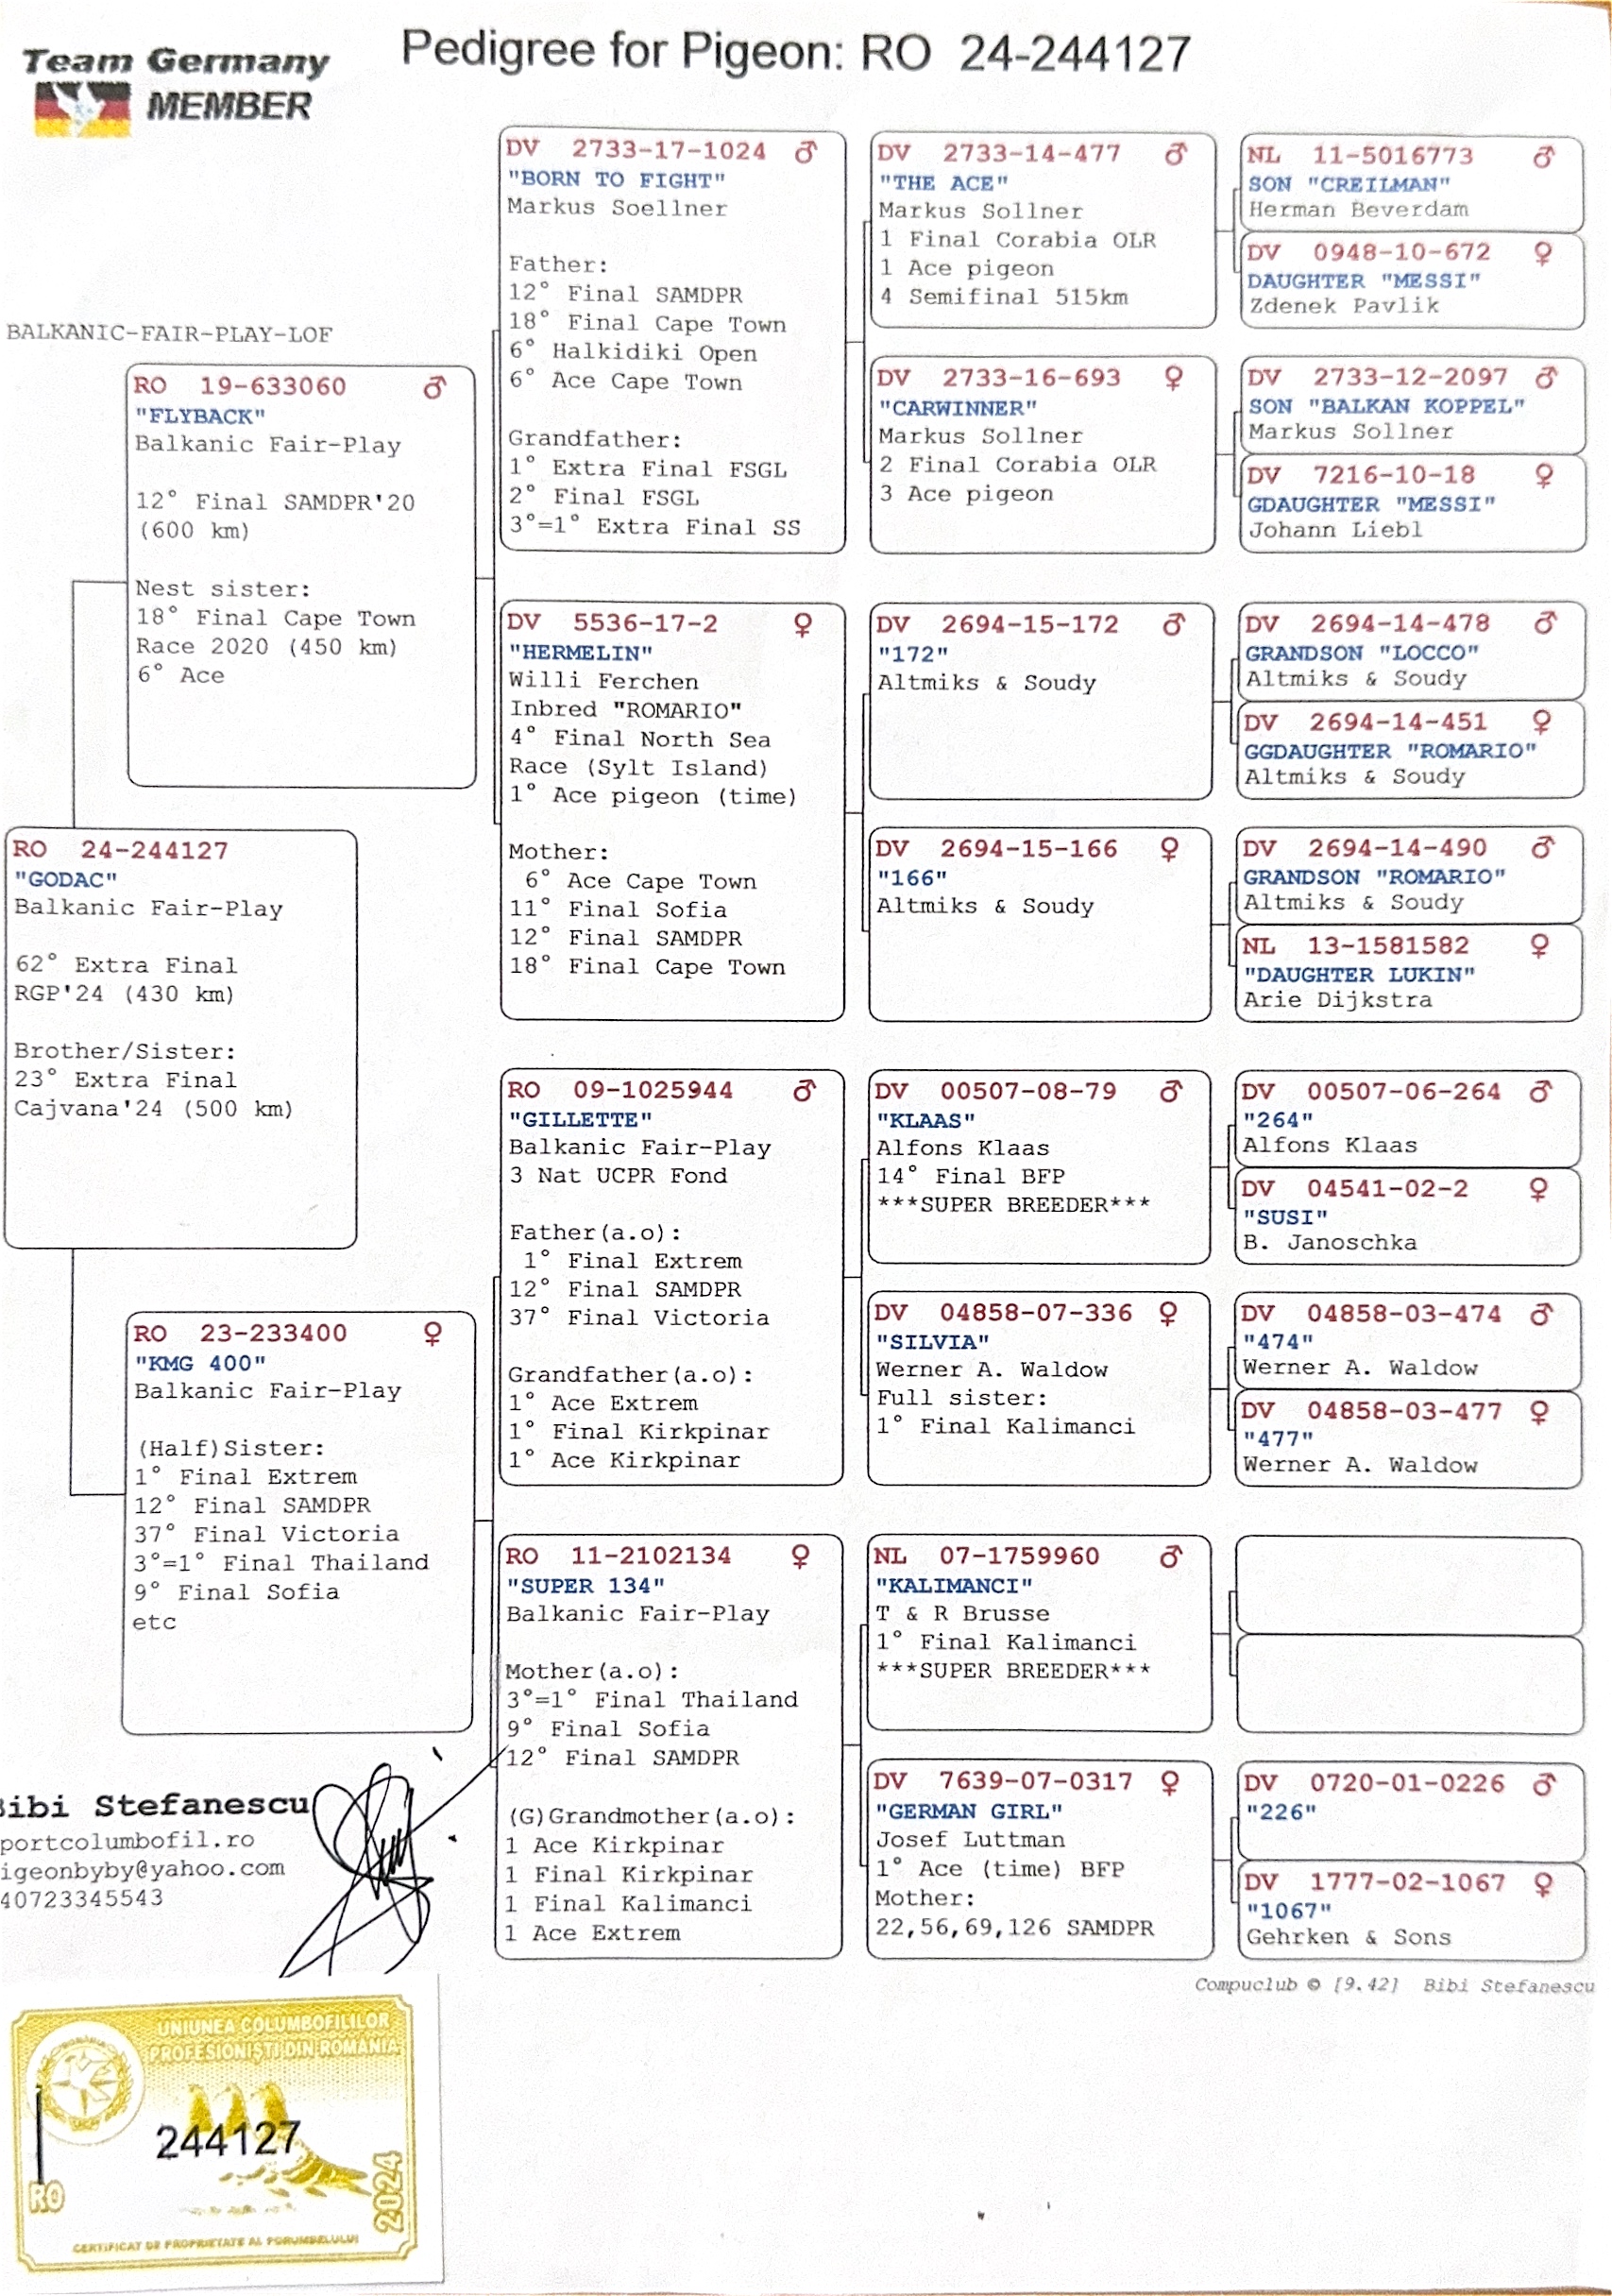 Team Germany
MEMBER
Pedigree for Pigeon: RO 24-244127
BALKANIC-FAIR-PLAY-LOF
RO 24-244127
"GODAC"
Balkanic Fair-Play
62° Extra Final
RGP'24 (430 km)
Brother/Sister:
23° Extra Final
Cajvana'24 (500 km)
RO 19-633060 ♂
"FLYBACK"
Balkanic Fair-Play
12° Final SAMDPR'20
(600 km)
Nest sister:
18° Final Cape Town
Race 2020 (450 km)
6° Ace
RO 23-233400 ♀
"KMG 400"
Balkanic Fair-Play
(Half)Sister:
1° Final Extrem
12° Final SAMDPR
37° Final Victoria
3°=1° Final Thailand
9° Final Sofia
etc
DV 2733-17-1024 ♂
"BORN TO FIGHT"
Markus Soellner
Father:
12° Final SAMDPR
18° Final Cape Town
6° Halkidiki Open
6° Ace Cape Town
Grandfather:
1° Extra Final FSGL
2° Final FSGL
3°=1° Extra Final SS
DV 5536-17-2 ♀
"HERMELIN"
Willi Ferchen
Inbred "ROMARIO"
4° Final North Sea
Race (Sylt Island)
1° Ace pigeon (time)
Mother:
6° Ace Cape Town
11° Final Sofia
12° Final SAMDPR
18° Final Cape Town
RO 09-1025944 ♂
"GILLETTE"
Balkanic Fair-Play
3 Nat UCPR Fond
Father(a.o):
1° Final Extrem
12° Final SAMDPR
37° Final Victoria
Grandfather(a.o):
1° Ace Extrem
1° Final Kirkpinar
1° Ace Kirkpinar
RO 11-2102134 ♀
"SUPER 134"
Balkanic Fair-Play
Mother(a.o):
3°=1° Final Thailand
9° Final Sofia
12° Final SAMDPR
(G)Grandmother(a.o):
1 Ace Kirkpinar
1 Final Kirkpinar
1 Final Kalimanci
1 Ace Extrem
DV 2733-14-477 ♂
"THE ACE"
Markus Sollner
1 Final Corabia OLR
1 Ace pigeon
4 Semifinal 515km
DV 2733-16-693 ♀
"CARWINNER"
Markus Sollner
2 Final Corabia OLR
3 Ace pigeon
DV 2694-15-172 ♂
"172"
Altmiks & Soudy
DV 2694-15-166 ♀
"166"
Altmiks & Soudy
DV 00507-08-79 ♂
"KLAAS"
Alfons Klaas
14° Final BFP
***SUPER BREEDER***
DV 04858-07-336 ♀
"SILVIA"
Werner A. Waldow
Full sister:
1° Final Kalimanci
NL 07-1759960 ♂
"KALIMANCI"
T & R Brusse
1° Final Kalimanci
***SUPER BREEDER***
DV 7639-07-0317 ♀
"GERMAN GIRL"
Josef Luttman
1° Ace (time) BFP
Mother:
22,56,69,126 SAMDPR
NL 11-5016773 ♂
SON "CREILMAN"
Herman Beverdam
DV 0948-10-672 ♀
DAUGHTER "MESSI"
Zdenek Pavlik
DV 2733-12-2097 ♂
SON "BALKAN KOPPEL"
Markus Sollner
DV 7216-10-18 ♀
GDAUGHTER "MESSI"
Johann Liebl
DV 2694-14-478 ♂
GRANDSON "LOCCO"
Altmiks & Soudy
DV 2694-14-451 ♀
GGDAUGHTER "ROMARIO"
Altmiks & Soudy
DV 2694-14-490 ♂
GRANDSON "ROMARIO"
Altmiks & Soudy
NL 13-1581582 ♀
"DAUGHTER LUKIN"
Arie Dijkstra
DV 00507-06-264 ♂
"264"
Alfons Klaas
DV 04541-02-2 ♀
"SUSI"
B. Janoschka
DV 04858-03-474 ♂
"474"
Werner A. Waldow
DV 04858-03-477 ♀
"477"
Werner A. Waldow
DV 0720-01-0226 ♂
"226"
DV 1777-02-1067 ♀
"1067"
Gehrken & Sons
ibi Stefanescu
portcolumbofil.ro
igeonbyby@yahoo.com
40723345543
Compuclub © [9.42] Bibi Stefanescu
UNIUNEA COLUMBOFILILOR
PROFESIONIȘTI DIN ROMANIA
244127
RO
2024
CERTIFICAT DE PROPRIETATE AL PORUMBELULUI